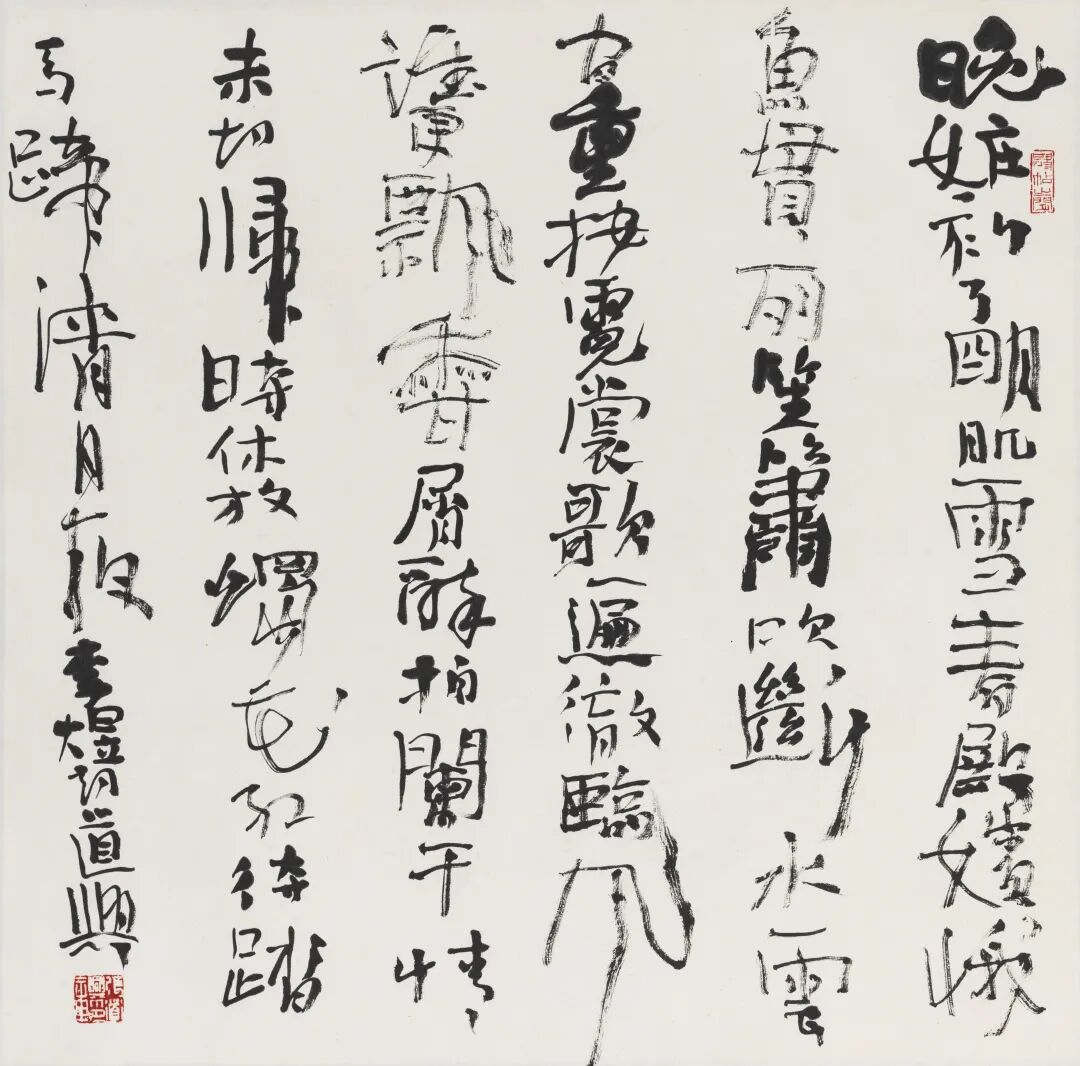 晚妝初了明肌雪春殿嬪娥
魚貫列笙簫吹斷水雲
間重按霓裳歌遍徹臨風
誰更飄香屑醉拍闌干情
未切歸時休放燭花紅待踏
馬蹄清月夜李煜詞道興